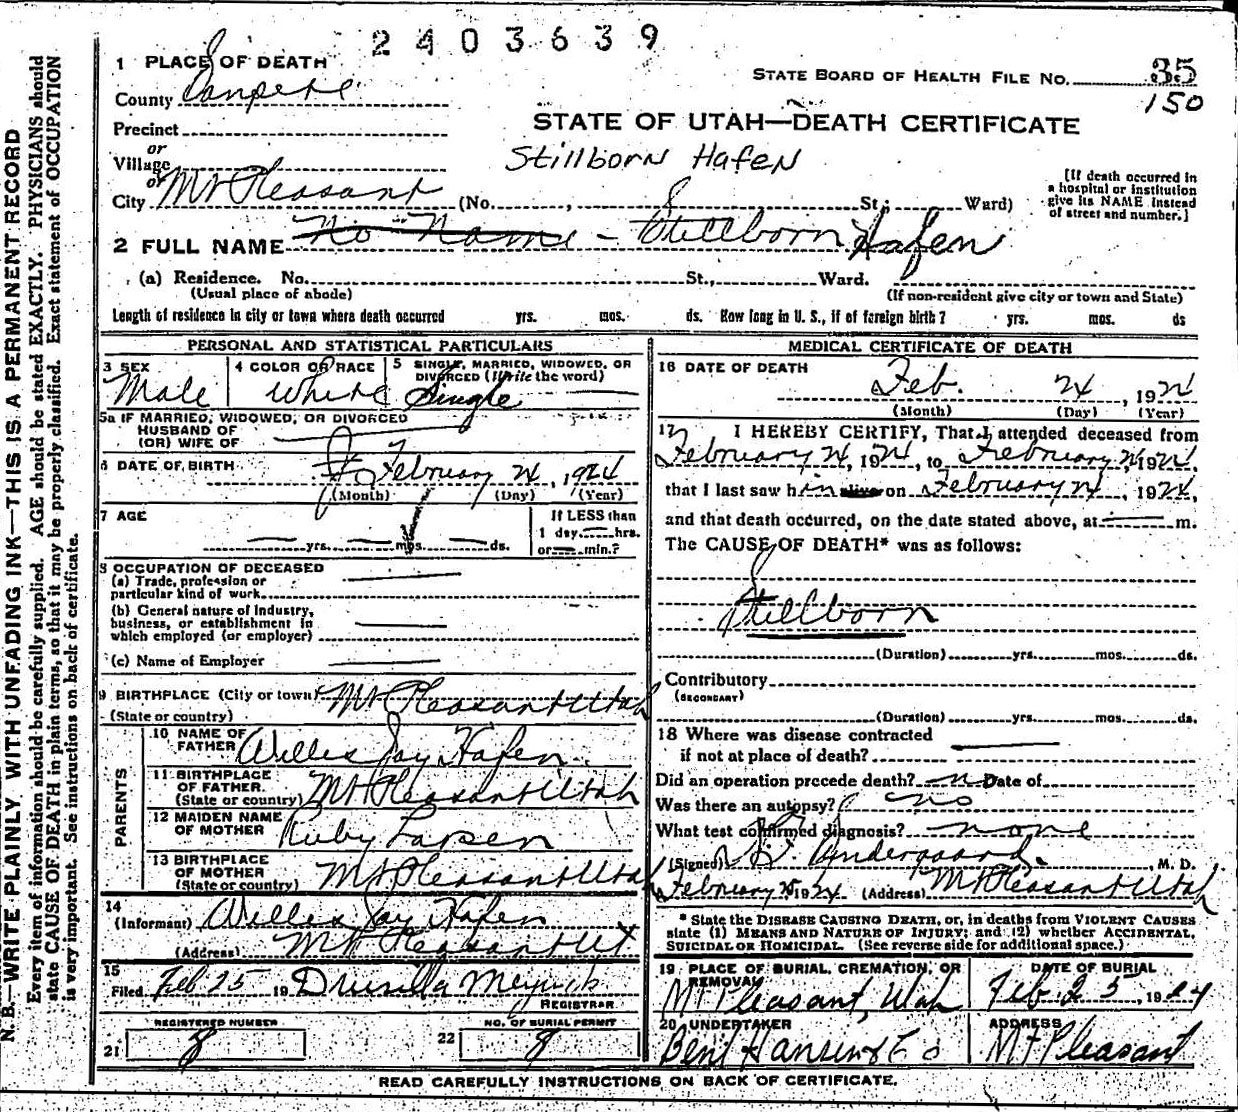 2403639
1 PLACE OF DEATH
STATE BOARD OF HEALTH FILE NO. 35
150
County Sanpete
Precinct
or
Village
or
City Mt Pleasant (No. , St.; Ward)
STATE OF UTAH—DEATH CERTIFICATE
Stillborn Hafen
[If death occurred in
a hospital or institution
give its NAME instead
of street and number.]
2 FULL NAME No Name - Stillborn Hafen
(a) Residence. No. St., Ward.
(Usual place of abode) (If non-resident give city or town and State)
Length of residence in city or town where death occurred yrs. mos. ds. How long in U. S., if of foreign birth? yrs. mos. ds
PERSONAL AND STATISTICAL PARTICULARS
3 SEX Male
4 COLOR OR RACE White
5 SINGLE, MARRIED, WIDOWED, OR
DIVORCED (Write the word) Single
5a IF MARRIED, WIDOWED, OR DIVORCED
HUSBAND OF
(OR) WIFE OF
6 DATE OF BIRTH February 24, 1924
(Month) (Day) (Year)
7 AGE yrs. mos. ds.
If LESS than
1 day hrs.
or min.?
8 OCCUPATION OF DECEASED
(a) Trade, profession or
particular kind of work
(b) General nature of industry,
business, or establishment in
which employed (or employer)
(c) Name of Employer
9 BIRTHPLACE (City or town) Mt Pleasant Utah
(State or country)
PARENTS
10 NAME OF
FATHER Willis Jay Hafen
11 BIRTHPLACE
OF FATHER.
(State or country) Mt Pleasant Utah
12 MAIDEN NAME
OF MOTHER Ruby Larsen
13 BIRTHPLACE
OF MOTHER
(State or country) Mt Pleasant Utah
14
(Informant) Willis Jay Hafen
(Address) Mt Pleasant Ut
15
Filed Feb 25 19 Drusilla
REGISTRAR
REGISTERED NUMBER
21 8
NO. OF BURIAL PERMIT
22 8
MEDICAL CERTIFICATE OF DEATH
16 DATE OF DEATH
Feb. 24, 1924
(Month) (Day) (Year)
17 I HEREBY CERTIFY, That I attended deceased from
February 24, 1924, to February 24 1924,
that I last saw him alive on February 24, 1924,
and that death occurred, on the date stated above, at m.
The CAUSE OF DEATH* was as follows:
Stillborn
(Duration) yrs. mos. ds.
Contributory
(SECONDARY)
(Duration) yrs. mos. ds.
18 Where was disease contracted
if not at place of death?
Did an operation precede death? no Date of
Was there an autopsy? no
What test confirmed diagnosis? none
(Signed) Undergaard. M. D.
February 25, 1924 (Address) Mt Pleasant Utah
* State the DISEASE CAUSING DEATH, or, in deaths from VIOLENT CAUSES
state (1) MEANS AND NATURE OF INJURY; and (2) whether ACCIDENTAL,
SUICIDAL OR HOMICIDAL. (See reverse side for additional space.)
19 PLACE OF BURIAL, CREMATION, OR
REMOVAL
Mt Pleasant, Utah
DATE OF BURIAL
Feb 25, 1924
20 UNDERTAKER
Bent Hansen & Co
ADDRESS
Mt Pleasant
READ CAREFULLY INSTRUCTIONS ON BACK OF CERTIFICATE.
N. B.—WRITE PLAINLY WITH UNFADING INK—THIS IS A PERMANENT RECORD
Every item of information should be carefully supplied. AGE should be stated EXACTLY. PHYSICIANS should
state CAUSE OF DEATH in plain terms, so that it may be properly classified. Exact statement of OCCUPATION
is very important. See instructions on back of certificate.